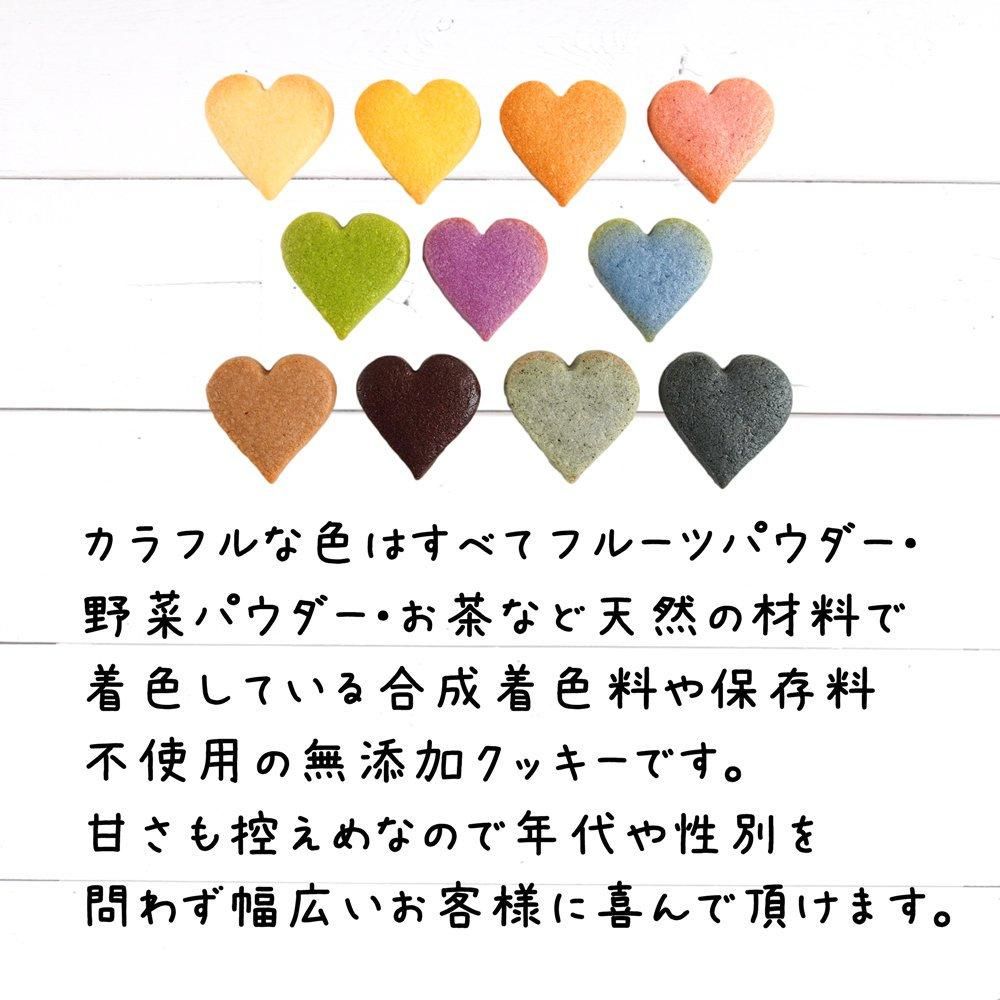 カラフルな色はすべてフルーツパウダー・
野菜パウダー・お茶など天然の材料で
着色している合成着色料や保存料
不使用の無添加クッキーです。
甘さも控えめなので年代や性別を
問わず幅広いお客様に喜んで頂けます。